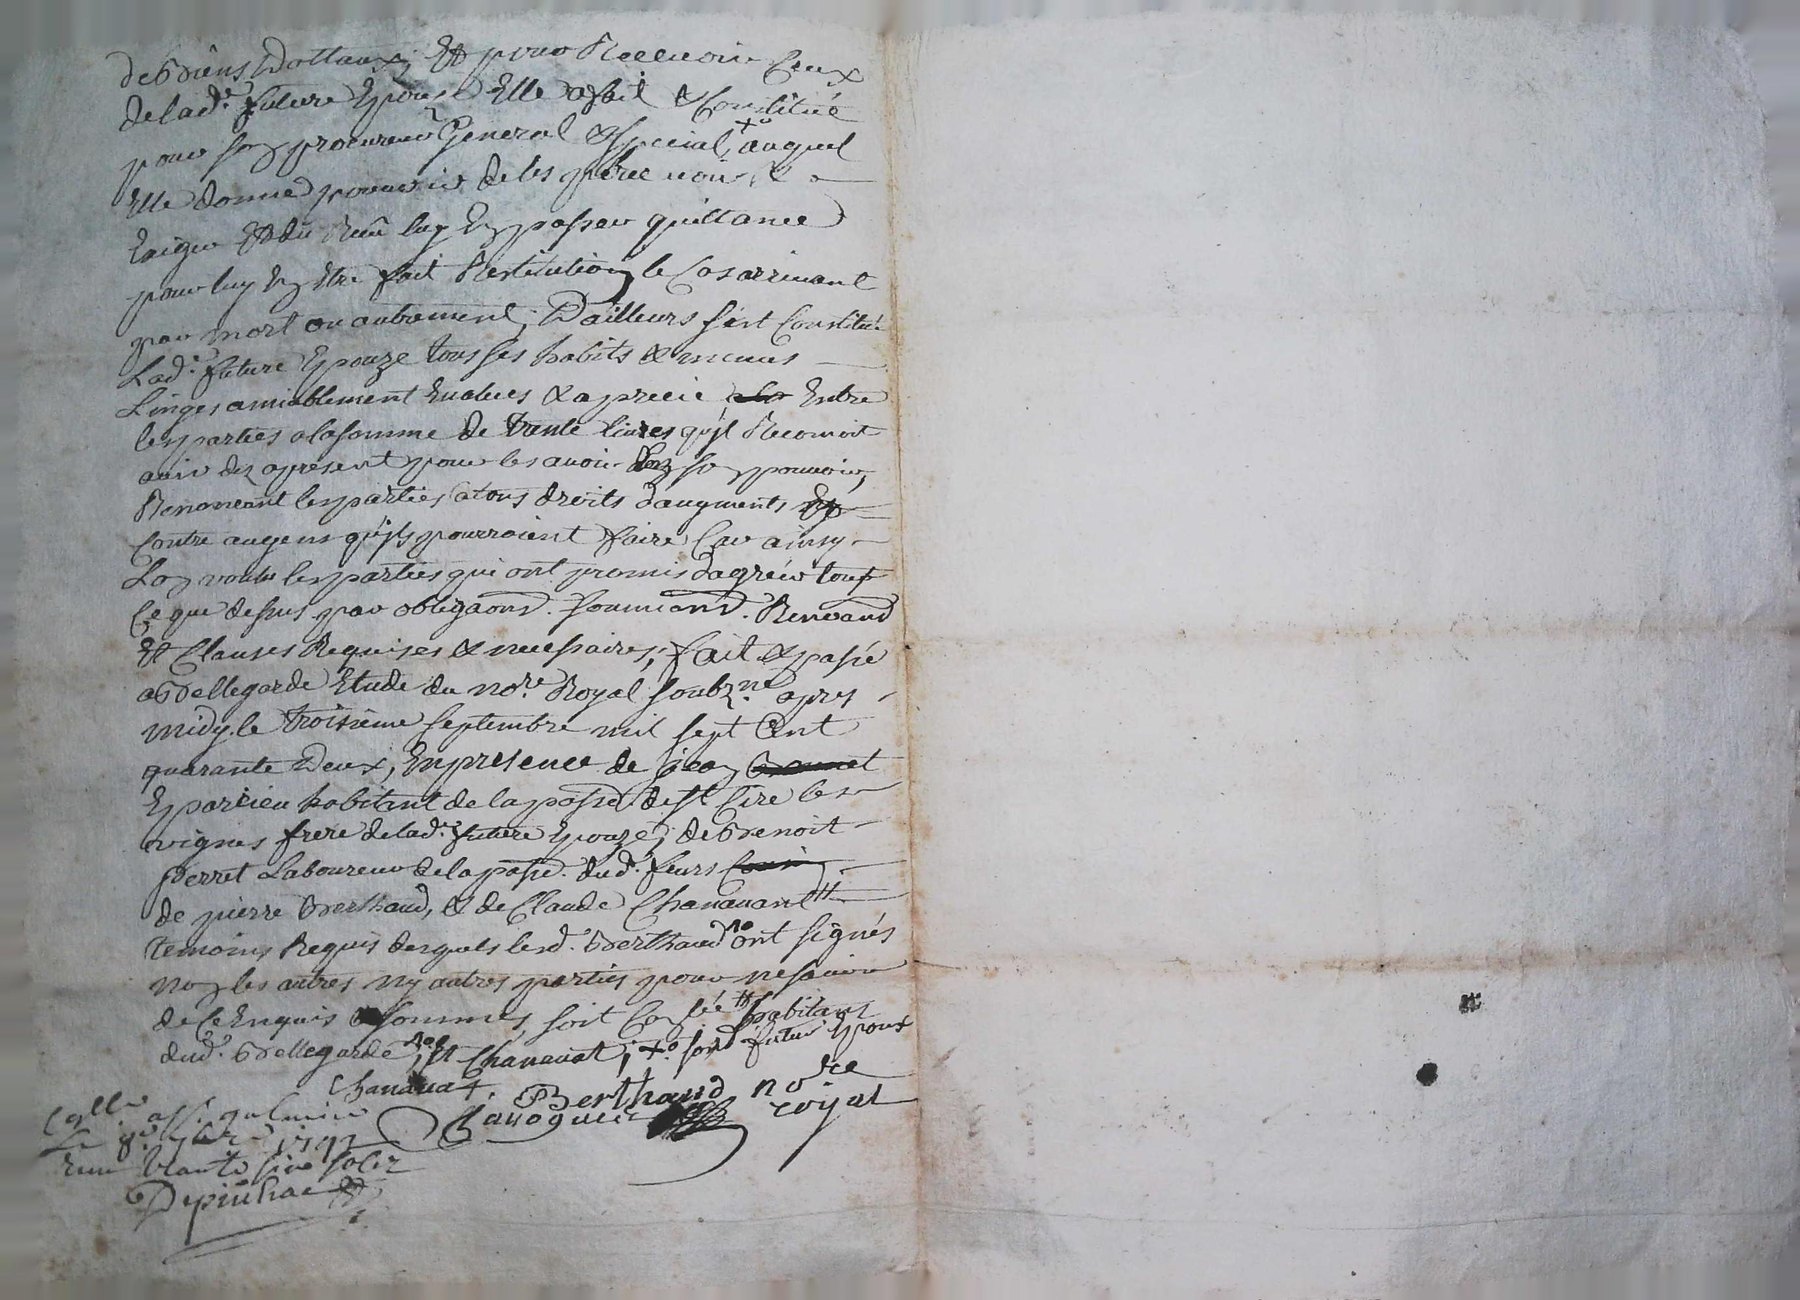 de biens Dottaux; Et pour Recevoir Ceux
de lad.e future Epouse Elle a fait & Constitué
pour son procureur General & special, +o auquel
Elle donne pouvoir de les percevoir &
Exiger Et du Reçu luy En passer quittance
pour luy En Etre fait Restitution le Cas arrivant
par mort ou autrement; D'ailleurs s'est Constitué
Lad.e future Epouze tous ses habits & menus
Linges amiablement Evalues & aprecié Entre
les parties a la somme de trente livres qu'il Reconnoit
avoir dez apresent pour les avoir En son pouvoir,
Renonceant les parties a tous droits d'augments Et
Contre augens qu'ils pourroient faire Car ainsy
L'on voulu les parties qui ont promis d'agréer tout
Ce que dessus par obligaons. soumions. Renonands
Et Clauses Requises & necessaires, fait & passé
a Bellegarde Etude du no.re Royal soubz.né apres
midy le troisième septembre mil sept Cent
quarante Deux, En presence de jean
Eparcieu habitant de la passe de St Cire les
vignes frere de lad.e future Epouze; de Benoit
perret Laboureur de la passe. dud. feurs
de pierre Berthaud, & de Claude Chanavat #
temoins Requis desquels lesd. Berthaud no ont signés
non les autres ny autres parties pour ne sçavoir
de Ce Enquis & sommés, soit Conlée # habitans
dud. Bellegarde no Et Chanavat; +o sond. futur Epoux
Chanavat. Berthaud nore
royal
Le 8e 7bre 1742
Reçu trante six solz